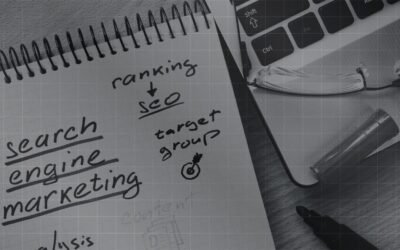 ranking
seo
target
group
search
engine
marketing
content
Shift
Ctrl